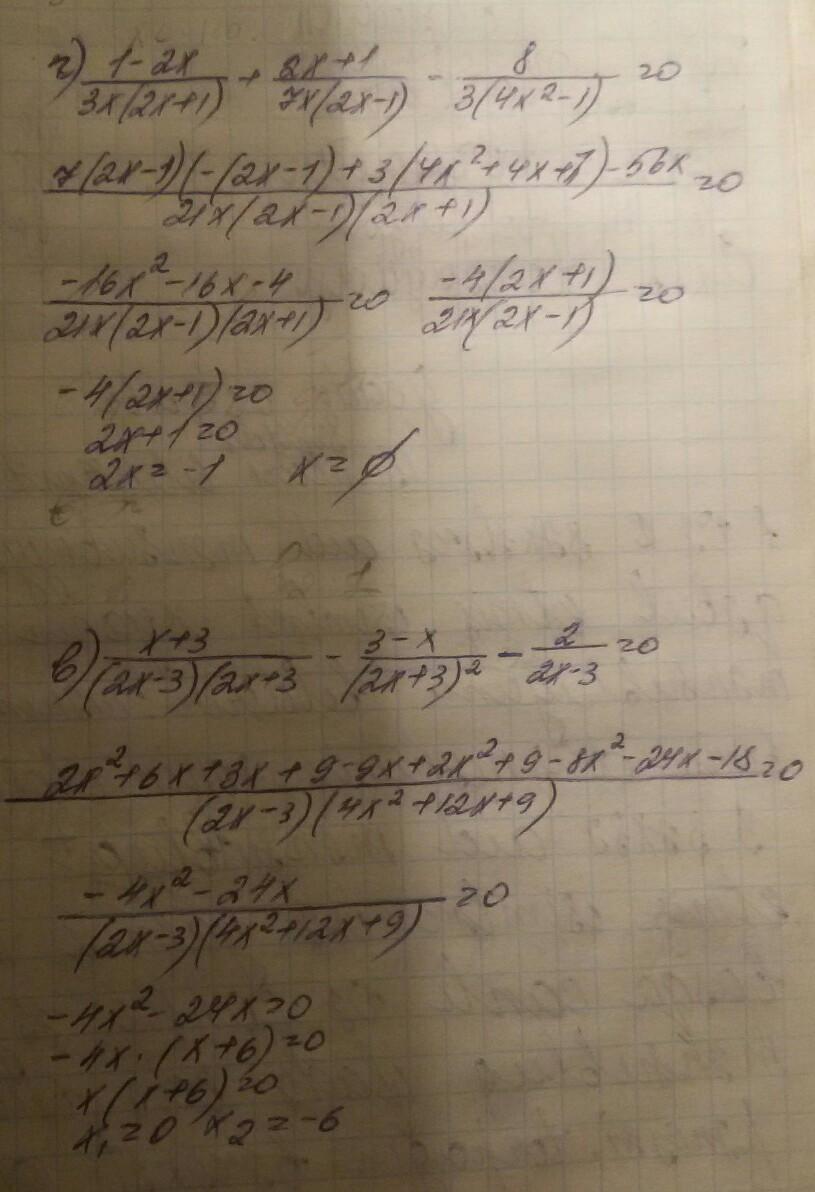 г) (1-2x)/(3x(2x+1)) + (2x+1)/(7x(2x-1)) - 8/(3(4x²-1)) = 0
(7(2x-1)(-(2x-1)+3(4x²+4x+1)-56x)/(21x(2x-1)(2x+1)) = 0
(-16x²-16x-4)/(21x(2x-1)(2x+1)) = 0 (-4(2x+1))/(21x(2x-1)) = 0
-4(2x+1)=0
2x+1=0
2x=-1 x=∅
в) (x+3)/((2x-3)(2x+3) - (3-x)/(2x+3)² - 2/(2x-3) = 0
(2x²+6x+3x+9-9x+2x²+9-8x²-24x-18)/((2x-3)(4x²+12x+9)) = 0
(-4x²-24x)/((2x-3)(4x²+12x+9)) = 0
-4x²-24x=0
-4x·(x+6)=0
x(x+6)=0
x₁=0 x₂=-6